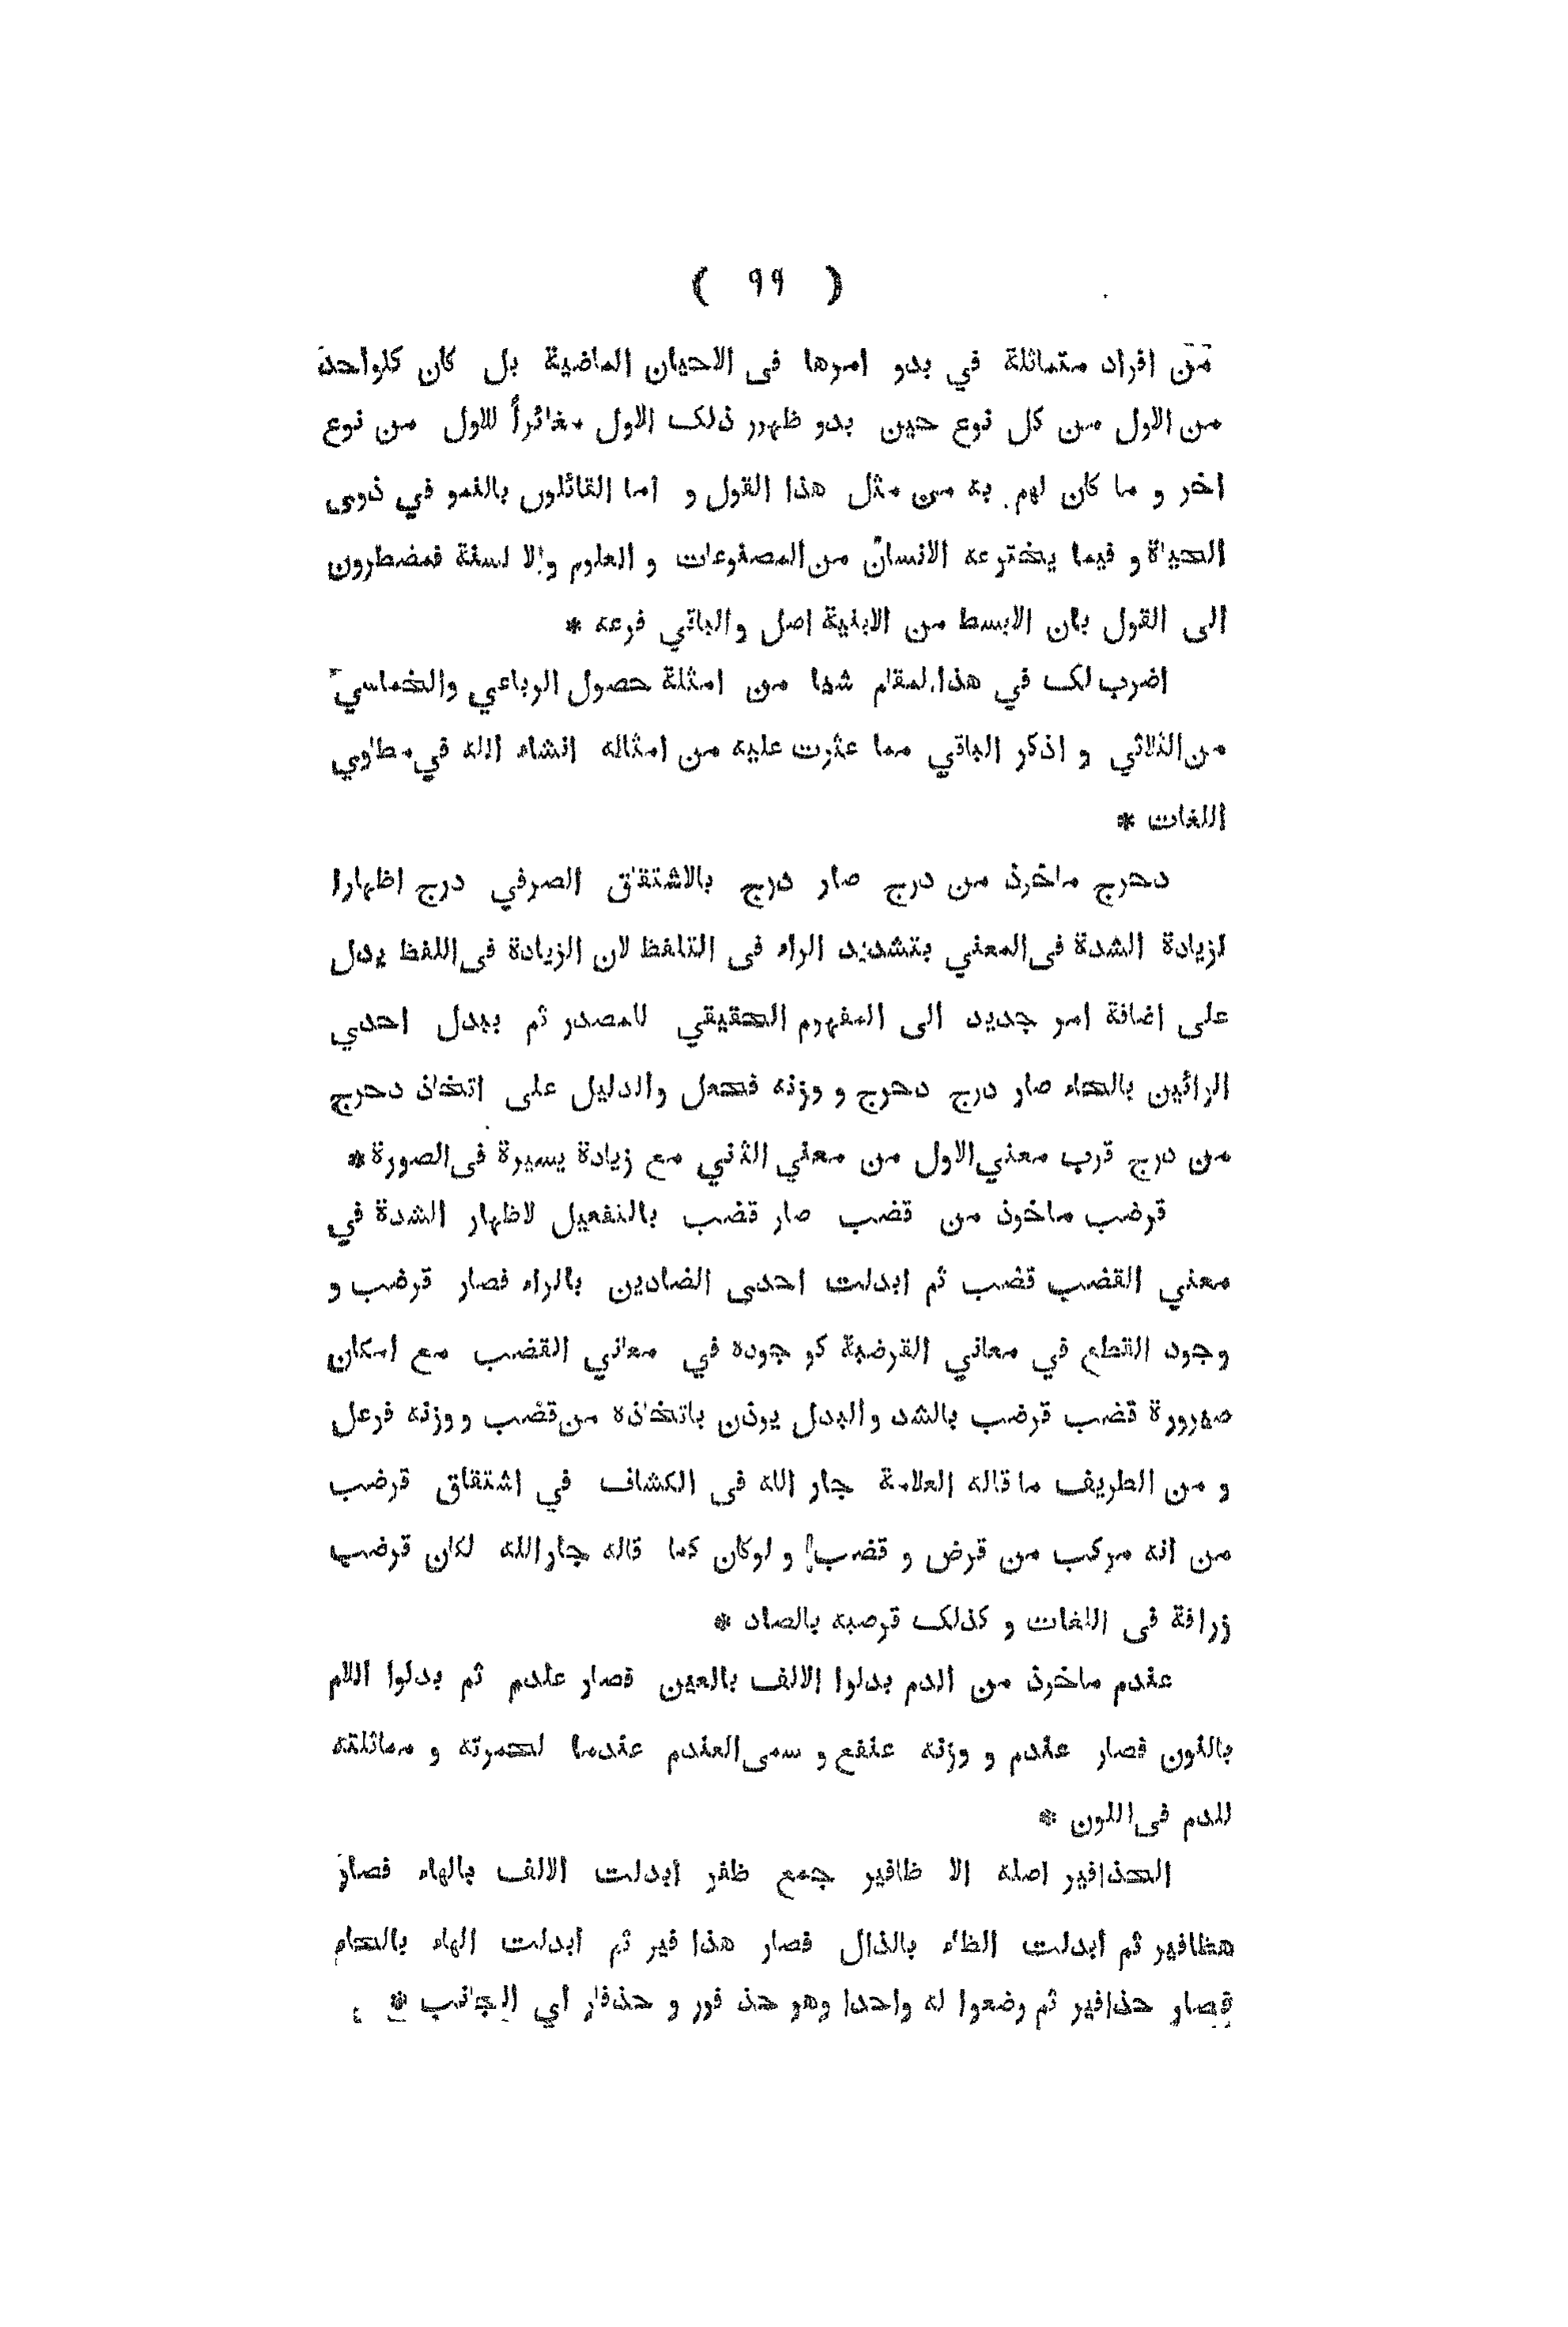 ( ٩٩ )
من افراد متماثلة في بدو امرها فى الاحيان الماضية بل كان كلواحد
من الاول من كل نوع حين بدو ظهور ذلك الاول مغائراً للاول من نوع
اخر و ما كان لهم به من مثل هذا القول و اما القائلون بالنمو في ذوى
الحياة و فيما يخترعه الانسان من المصنوعات و العلوم و الا لسنة فمضطرون
الى القول بان الابسط من الابنية اصل والباقي فرعه *
اضرب لك في هذا المقام شيا من امثلة حصول الرباعي والخماسي
من الثلاثي و اذكر الباقي مما عثرت عليه من امثاله انشاء الله في مطاوي
اللغات *
دحرج ماخوذ من درج صار درج بالاشتقاق الصرفي درج اظهارا
لزيادة الشدة فى المعني بتشديد الراء فى التلفظ لان الزيادة فى اللفظ يدل
على اضافة امر جديد الى المفهوم الحقيقي للمصدر ثم ببدل احدي
الرائين بالحاء صار درج دحرج و وزنه فحعل والدليل على اتخاذ دحرج
من درج قرب معني الاول من معني الثني مع زيادة يسيرة فى الصورة *
قرضب ماخوذ من قضب صار قضب بالتفعيل لاظهار الشدة في
معني القضب قضب ثم ابدلت احدى الضادين بالراء فصار قرضب و
وجود القطع في معاني القرضبة كو جوده في معاني القضب مع امكان
صيرورة قضب قرضب بالشد والبدل يوذن باتخاذه من قضب و وزنه فرعل
و من الطريف ما قاله العلامة جار الله فى الكشاف في اشتقاق قرضب
من انه مركب من قرض و قضب! و لوكان كما قاله جار الله لكان قرضب
زرافة فى اللغات و كذلك قرصبه بالصاد *
عندم ماخوذ من الدم بدلوا الالف بالعين فصار علدم ثم بدلوا اللام
بالنون فصار عندم و وزنه عنفع و سمى العندم عندما لحمرته و مماثلته
للدم فى اللون *
الحذافير اصله الا ظافير جمع ظفر أبدلت الالف بالهاء فصار
هظافير ثم أبدلت الظاء بالذال فصار هذا فير ثم أبدلت الهاء بالحاء
فصار حذافير ثم وضعوا له واحدا وهو حذ فور و حذفار أي الجانب *